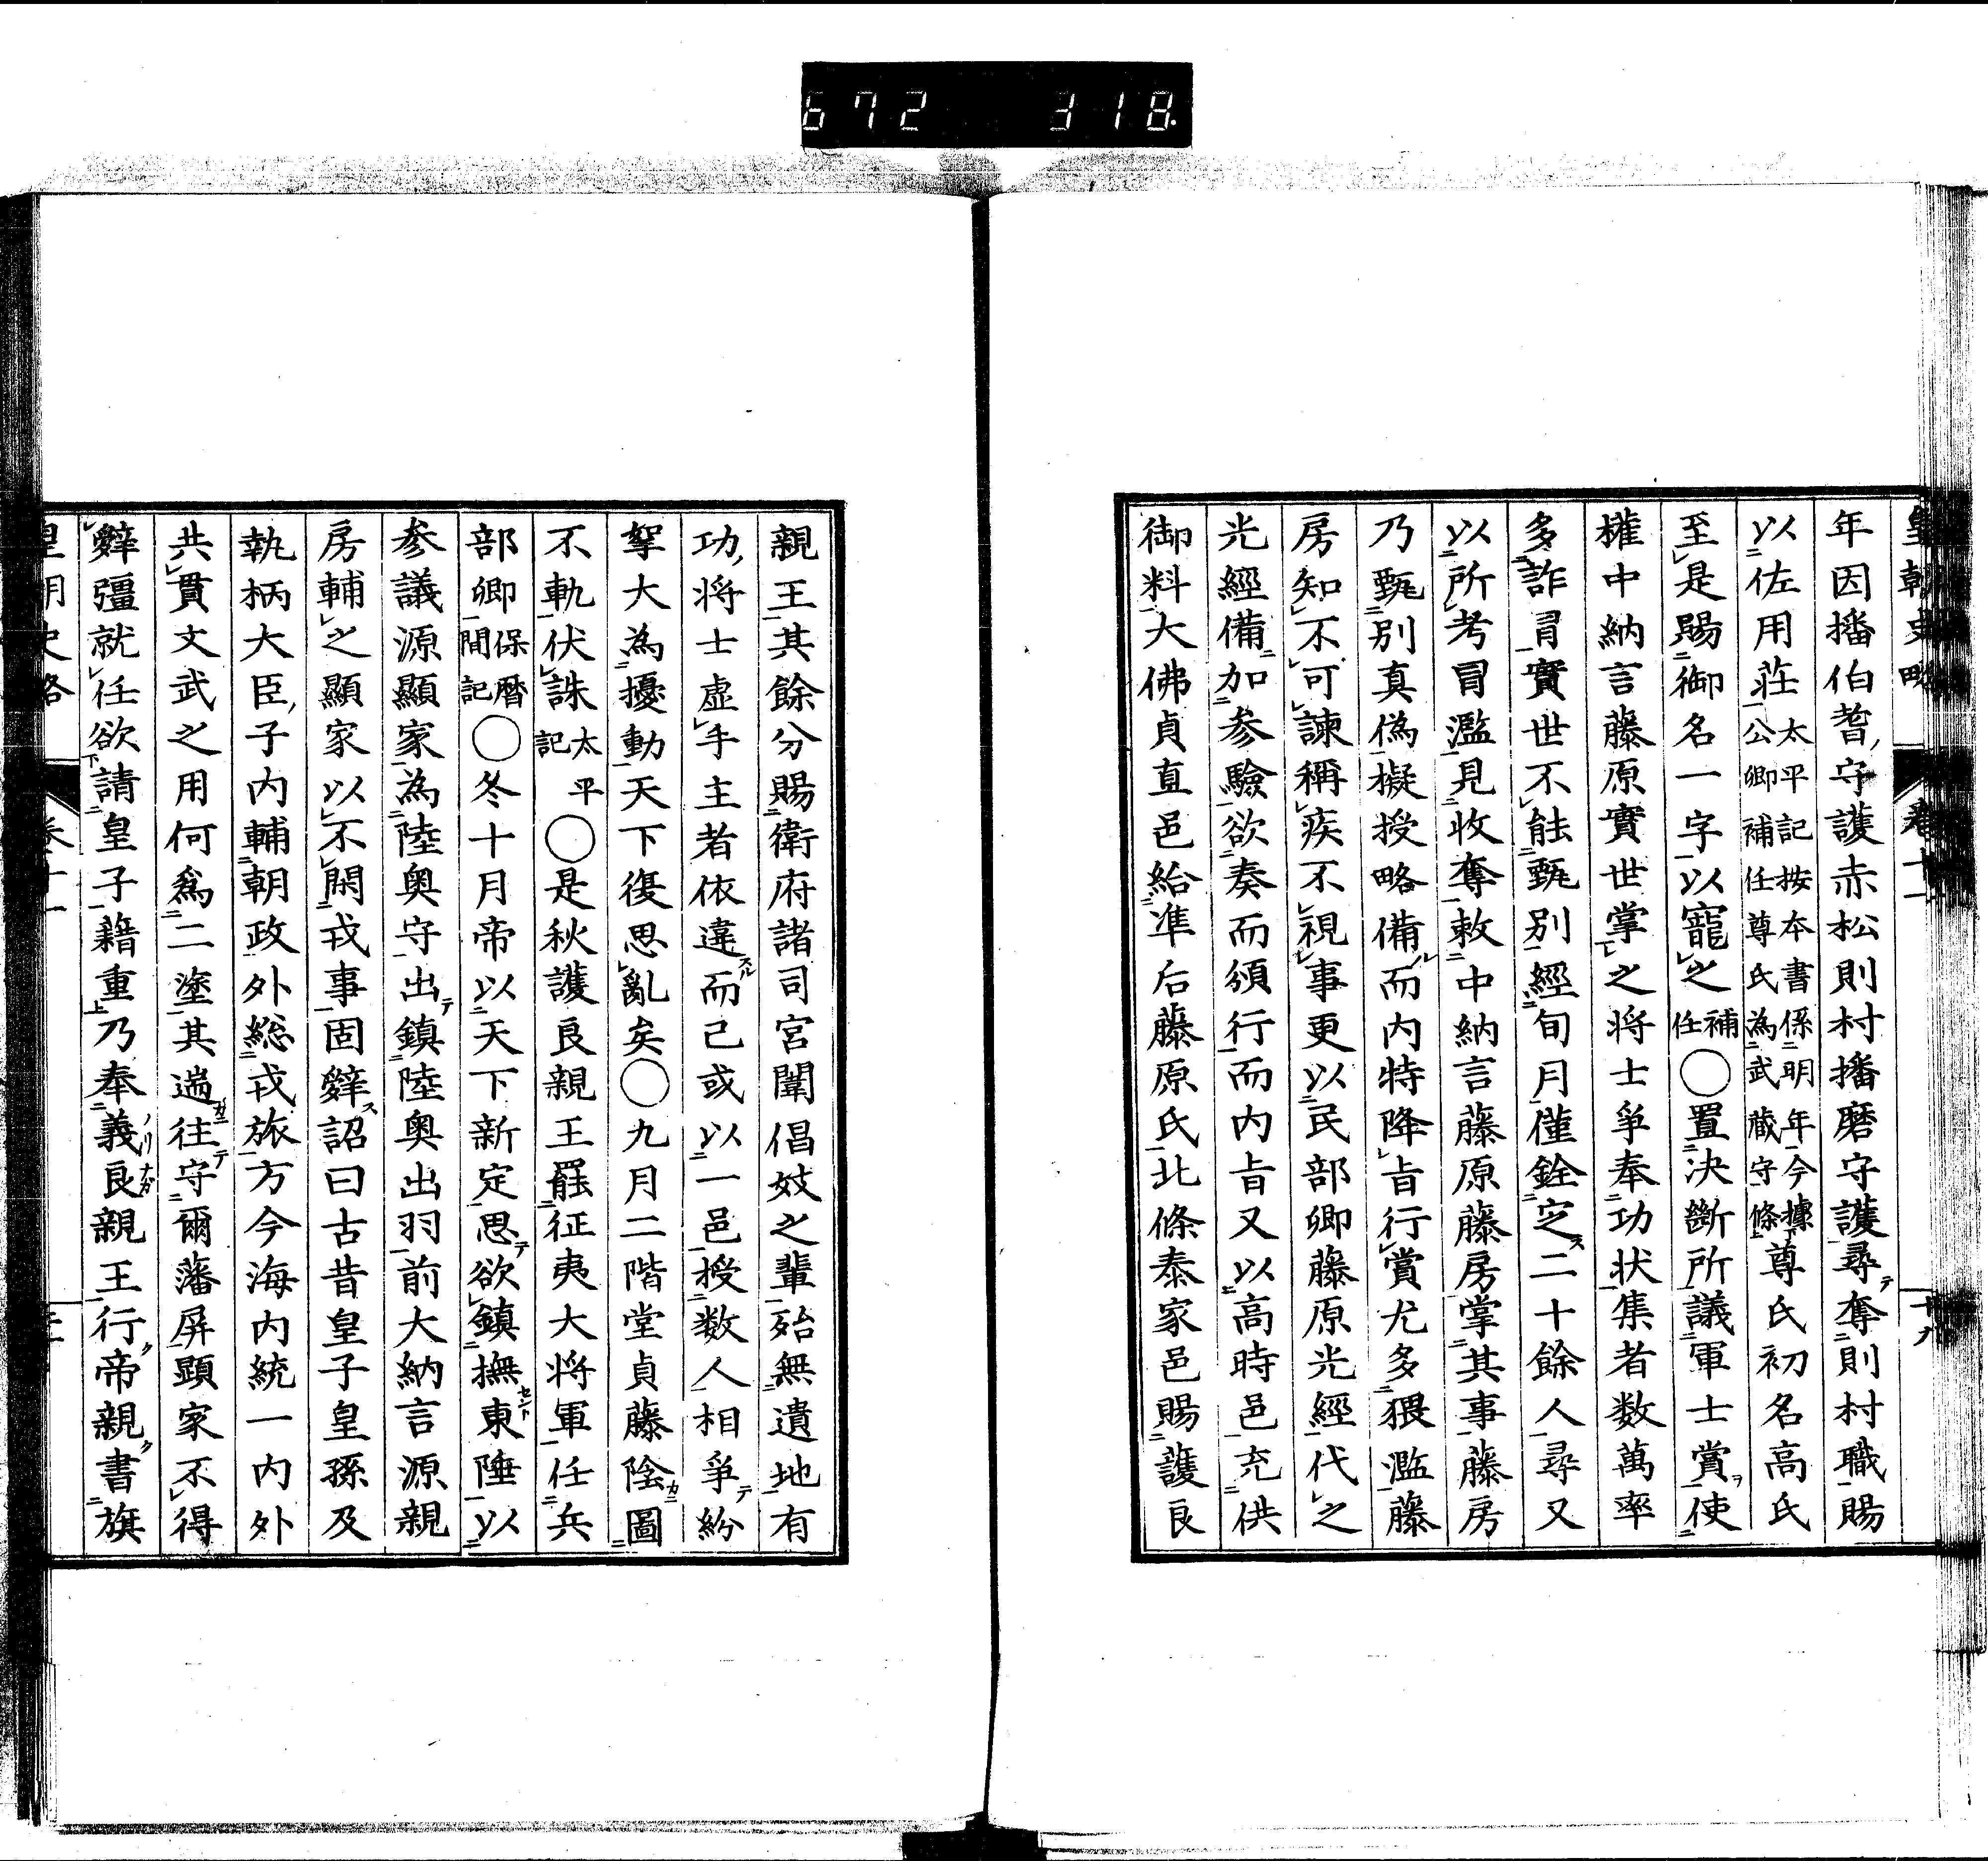 672 318
皇朝史略 卷十一 十九
年因播伯耆守護赤松則村播磨守護尋奪則村職賜
以佐用莊太平記按本書係明年今據公卿補任尊氏為武藏守條尊氏初名高氏
至是賜御名一字以寵之補任〇置决斷所議軍士賞使
權中納言藤原實世掌之将士爭奉功状集者数萬率
多詐冒實世不能甄別經旬月僅銓定二十餘人尋又
以所考冒濫見收奪敕中納言藤原藤房掌其事藤房
乃甄別真偽擬授略備而内特降旨行賞尤多猥濫藤
房知不可諫稱疾不視事更以民部卿藤原光經代之
光經備加参驗欲奏而頒行而内旨又以高時邑充供
御料大佛貞直邑給准后藤原氏北條泰家邑賜護良
親王其餘分賜衛府諸司宮闈倡妓之輩殆無遺地有
功将士虚手主者依違而已或以一邑授数人相爭紛
拏大為擾動天下復思亂矣〇九月二階堂貞藤陰圖
不軌伏誅太平記〇是秋護良親王罷征夷大将軍任兵
部卿保曆間記〇冬十月帝以天下新定思欲鎮撫東陲以
参議源顯家為陸奥守出鎮陸奥出羽前大納言源親
房輔之顯家以不閑戎事固辤詔曰古昔皇子皇孫及
執柄大臣子内輔朝政外総戎旅方今海内統一内外
共貫文武之用何爲二塗其遄往守爾藩屏顕家不得
辤彊就任欲請皇子藉重乃奉義良親王行帝親書旗
皇朝史略 卷十一